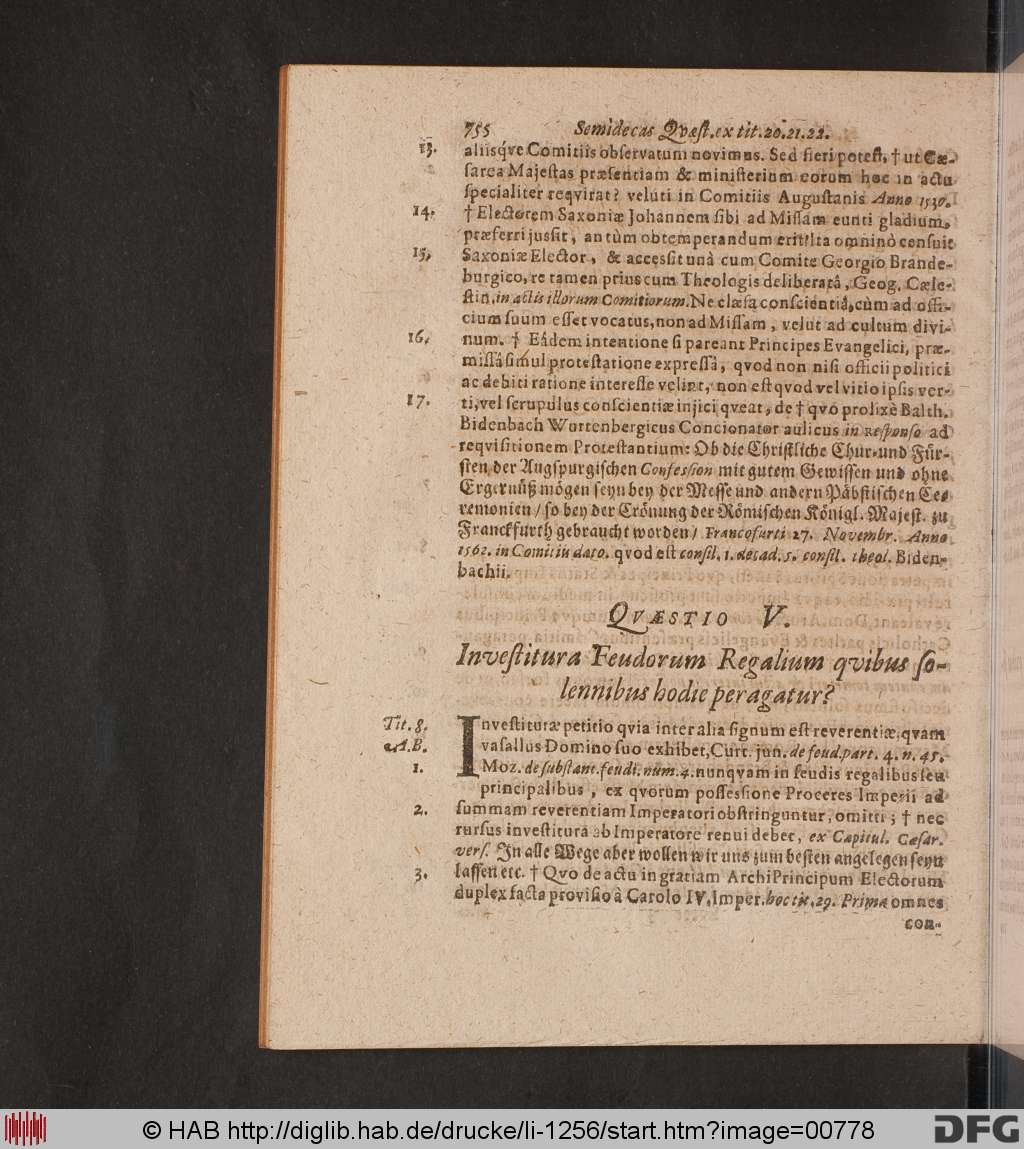 755 Semidecas Qvæst. ex tit. 20. 21. 22.
13. aliisqve Comitiis observatum novimus. Sed fieri potest, † ut Cæ-
sarea Majestas præsentiam & ministerium eorum hoc in actu
specialiter reqvirat? veluti in Comitiis Augustanis Anno 1530.
14. † Electorem Saxoniæ Johannem sibi ad Missam eunti gladium,
præferri jussit, an tùm obtemperandum erit? Ita omninò censuit
15. Saxoniæ Elector, & accessit unà cum Comite Georgio Brande-
burgico, re tamen prius cum Theologis deliberatâ, Geog. Cæle-
stin. in actis illorum Comitiorum. Ne læsa conscientiâ, cùm ad offi-
cium suum esset vocatus, non ad Missam, velut ad cultum divi-
16. num. † Eâdem intentione si pareant Principes Evangelici, præ-
missâ simul protestatione expressâ, qvod non nisi officii politici
ac debiti ratione interesse velint, non est qvod vel vitio ipsis ver-
17. ti, vel scrupulus conscientiæ injici qveat, de † qvo prolixè Balth.
Bidenbach Wurtenbergicus Concionator aulicus in Responso ad
reqvisitionem Protestantium: Ob die Christliche Chur-und Für-
sten der Augspurgischen Confession mit gutem Gewissen und ohne
Ergernüß mögen seyn bey der Messe und andern Päbstischen Ce-
remonien / so bey der Crönung der Römischen Königl. Majest. zu
Franckfurth gebraucht worden / Francofurti 27. Novembr. Anno
1562. in Comitiis dato. qvod est consil. 1. decad. 5. consil. theol. Biden-
bachii.
QVÆSTIO V.
Investitura Feudorum Regalium qvibus so-
lennibus hodie peragatur?
Tit. 8. Investituræ petitio qvia inter alia signum est reverentiæ, qvam
A. B. vasallus Domino suo exhibet, Curt. jun. de feud. part. 4. n. 45.
1. Moz. de substant. feudi. num. 4. nunqvam in feudis regalibus seu
principalibus, ex qvorum possessione Proceres Imperii ad
2. summam reverentiam Imperatori obstringuntur, omitti; † nec
rursus investitura ab Imperatore renui debet, ex Capitul. Cæsar.
vers. In alle Wege aber wollen wir uns zum besten angelegen seyn
3. lassen etc. † Qvo de actu in gratiam ArchiPrincipum Electorum
duplex facta provisio à Carolo IV. Imper. hoc tit. 29. Prima omnes
con-
© HAB http://diglib.hab.de/drucke/li-1256/start.htm?image=00778
DFG